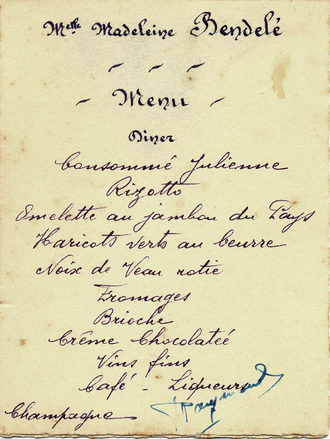 Melle Madeleine Hendelé
Menu
Diner
Consommé Julienne
Rizotto
Omelette au jambon du Pays
Haricots verts au beurre
Noix de Veau rotie
Fromages
Brioche
Crème Chocolatée
Vins fins
Café - Liqueurs
Champagne